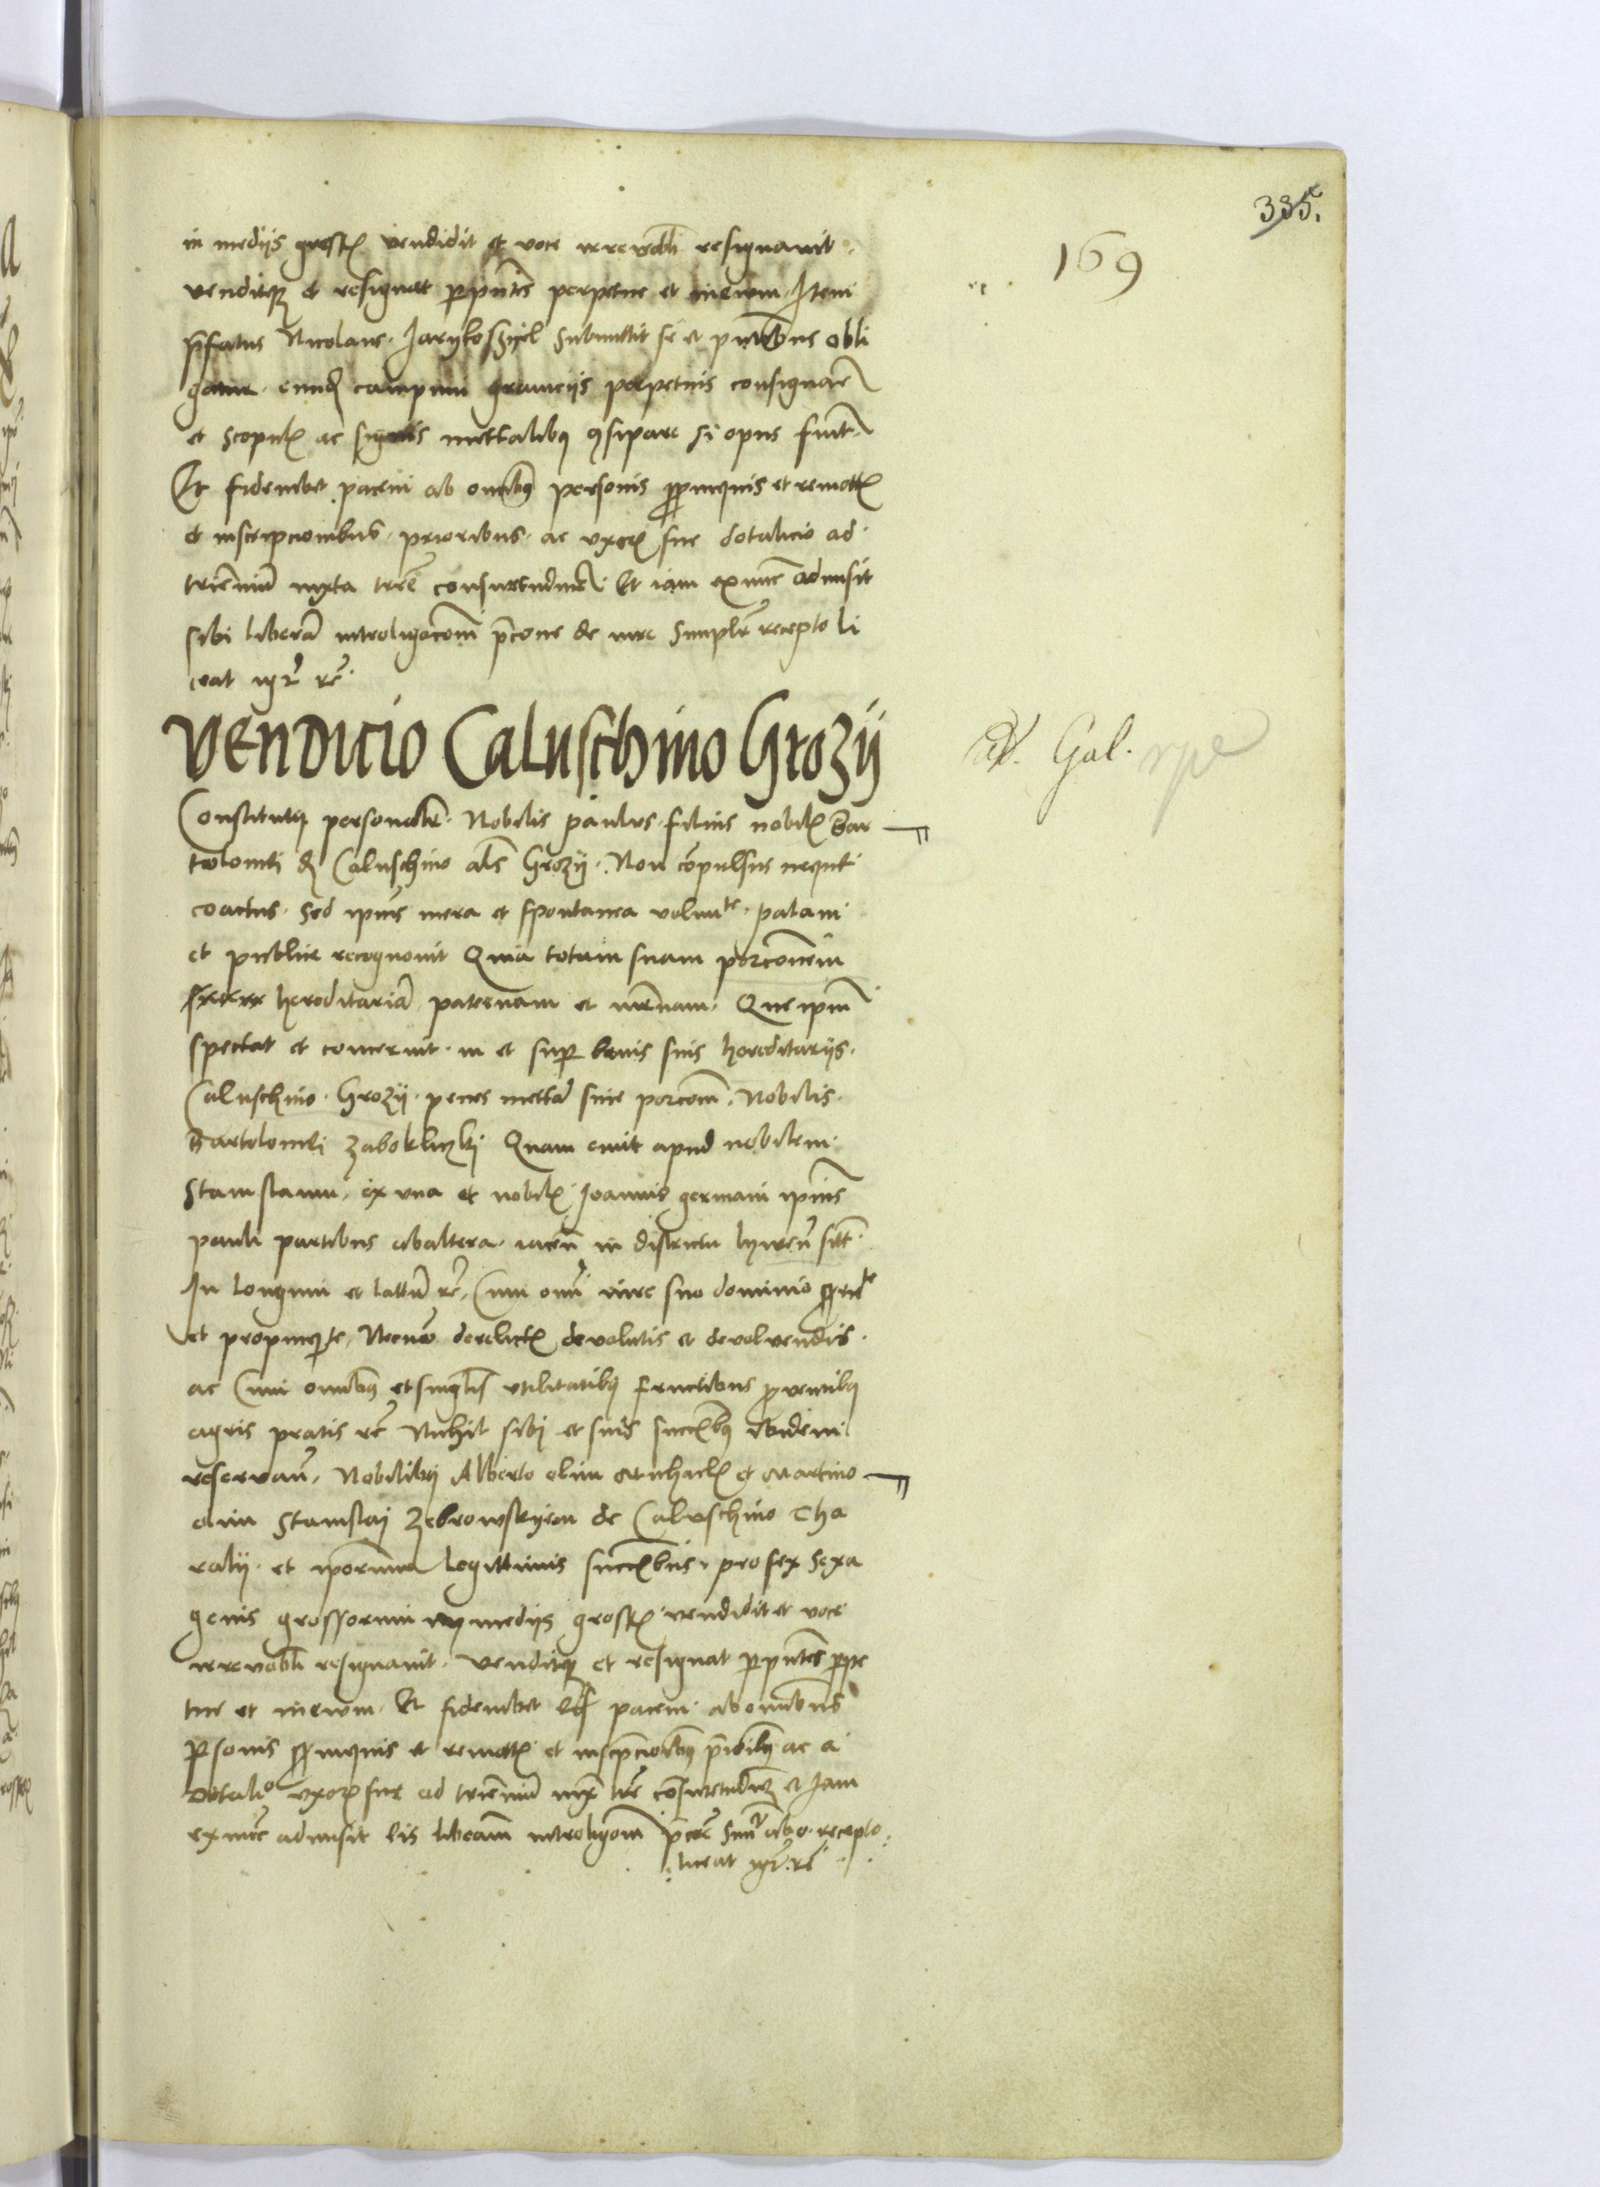 335.
169
in medijs grossis vendidit et voce irrevocabli resignavit
venditque et resignat per presentes perpetue et in evum Item
prefatus Nicolaus Jarzylo submittit se et presentibus obli
gatur eundem campum granicijs perpetuis consignare
et scopulis ac signis mettalibus si opus fuerit
Et fideiubet pacem ab omnibus personis propinquis et remottis
et inscripcionibus prioribus ac uxoris sue dotalicio ad
trienniu iuxta terre consuetudinem Et iam ex nunc admisit
sibi liberam introligacionem de iure simpliciter recepto li
ceat igitur etc
Vendicio Caluschino Grozij
Ad. Gal.
Constitutus personaliter Nobilis paulus filius nobilis Bar
tolomei de Caluschino als Grozij Non compulsus neque
coactus Sed ipsius mera et spontanea volunte palam
et publice recognovit Quia totam suam porcionem
hereditaria paternam et maternam Que ipsum
spectat et concernit in et super bonis suis hereditarijs
Caluschino Grozij penes mettas sue porcionem Nobilis
Bartolomei Zabokliczki Quam emit apud nobilem
Stanislaum ex una et nobilis Joannis germani ipsius
pauli partibus ab altera iacen in districtu Lywen sitam
In longum et lattum etc Cum omni iure suo dominio
et propinquitate Necnon derelictis devolutis et devolvendis
ac Cum omnibus et singulis utilitatibus fructibus proventibus
agris pratis etc Nichil sibi et suis successoribus ibidem
reservan Nobilibus Alberto olim Michaelis et Martino
olim Stanislaj Zebrowskijem de Caluschino Cha
ralij et ipsorum legittimis successoribus pro sex sexa
genis grossorum in medijs grossis vendidit et voce
irrevocabli resignavit venditque et resignat per presentes perpe
tue et in evum Et fideiubet eis pacem ab omnibus
personis propinquis et remottis et inscripcionibus prioribus ac a
dotalio uxoris sue ad trienniu iuxta terre consuetudinem et Iam
ex nunc admisit eis liberam introligacionem recepto
liceat igitur etc